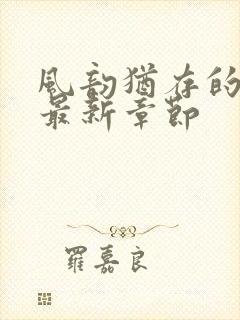 风韵猶存的
最新章節
羅嘉良